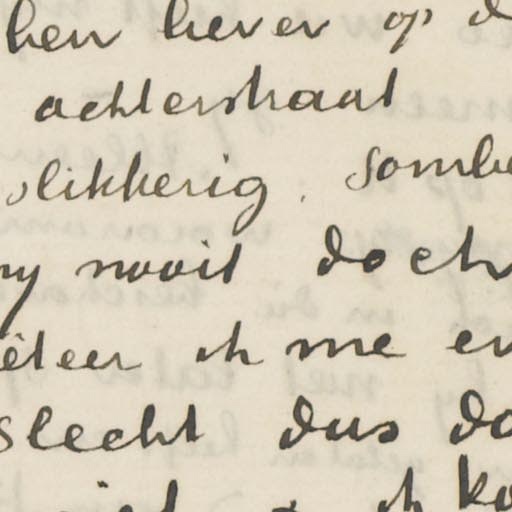 ben liever op d
achterstraat
slikkerig. Sombe
ny nooit doch
êteer ik me en
slecht dus da
ik ko